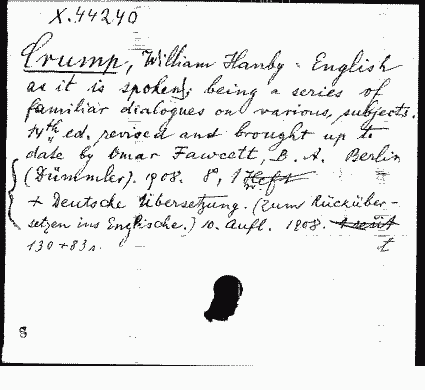 X.44240
Crump, William Hanby - English
as it is spoken; being a series of
familiar dialogues on various subjects.
14th ed. revised and brought up to
date by Omar Fawcett, B. A. Berlin
(Dümmler). 1908. 8°, 1 Heft
+ Deutsche Übersetzung. (Zum Rücküber-
setzen ins Englische.) 10. Aufl. 1908.
130+83 s. t
8